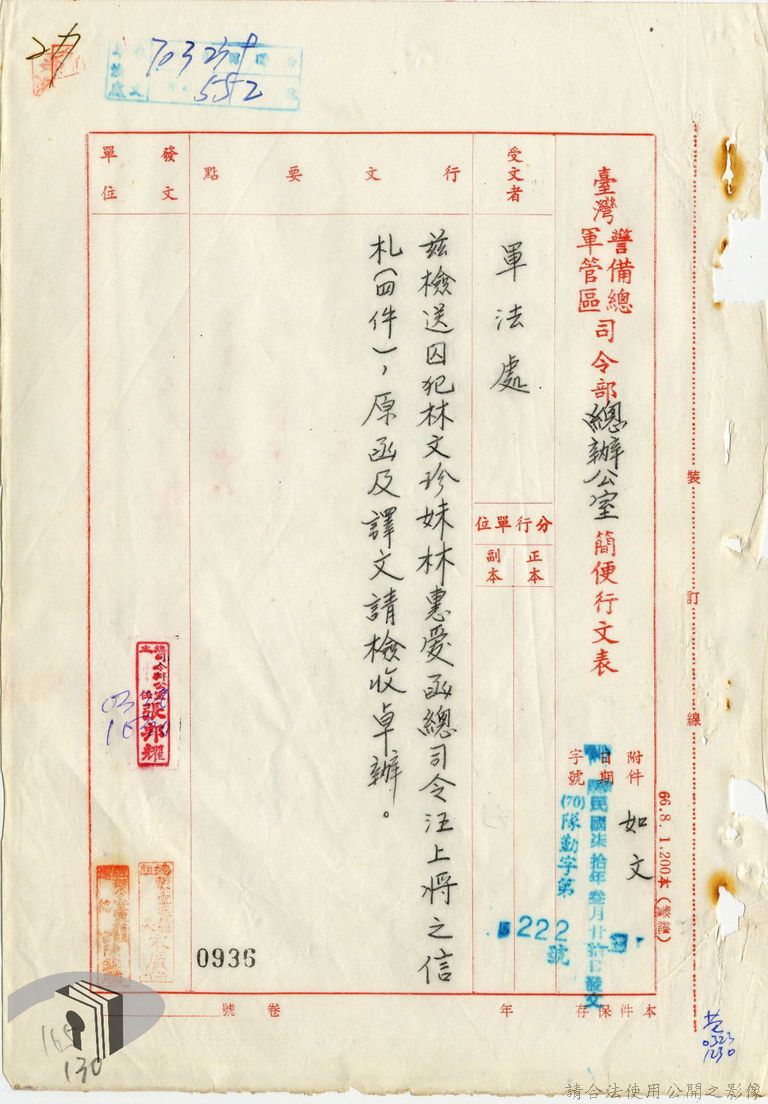 70323
552
臺灣警備總軍管區司令部總辦公室簡便行文表
附件 如文
日期 民國柒拾年叁月
字號 (70)隊勤字第5222號
受文者
軍法處
分行單位
正本
副本
行文要點
茲檢送囚犯林文珍妹林惠愛函總司令汪上將之信
札(四件),原函及譯文請檢收卓辦。
發文單位
張邦耀
0936
本件保存 年 卷 號
裝訂線
66.8.1.200本
0323
1230
165
130
請合法使用公開之影像